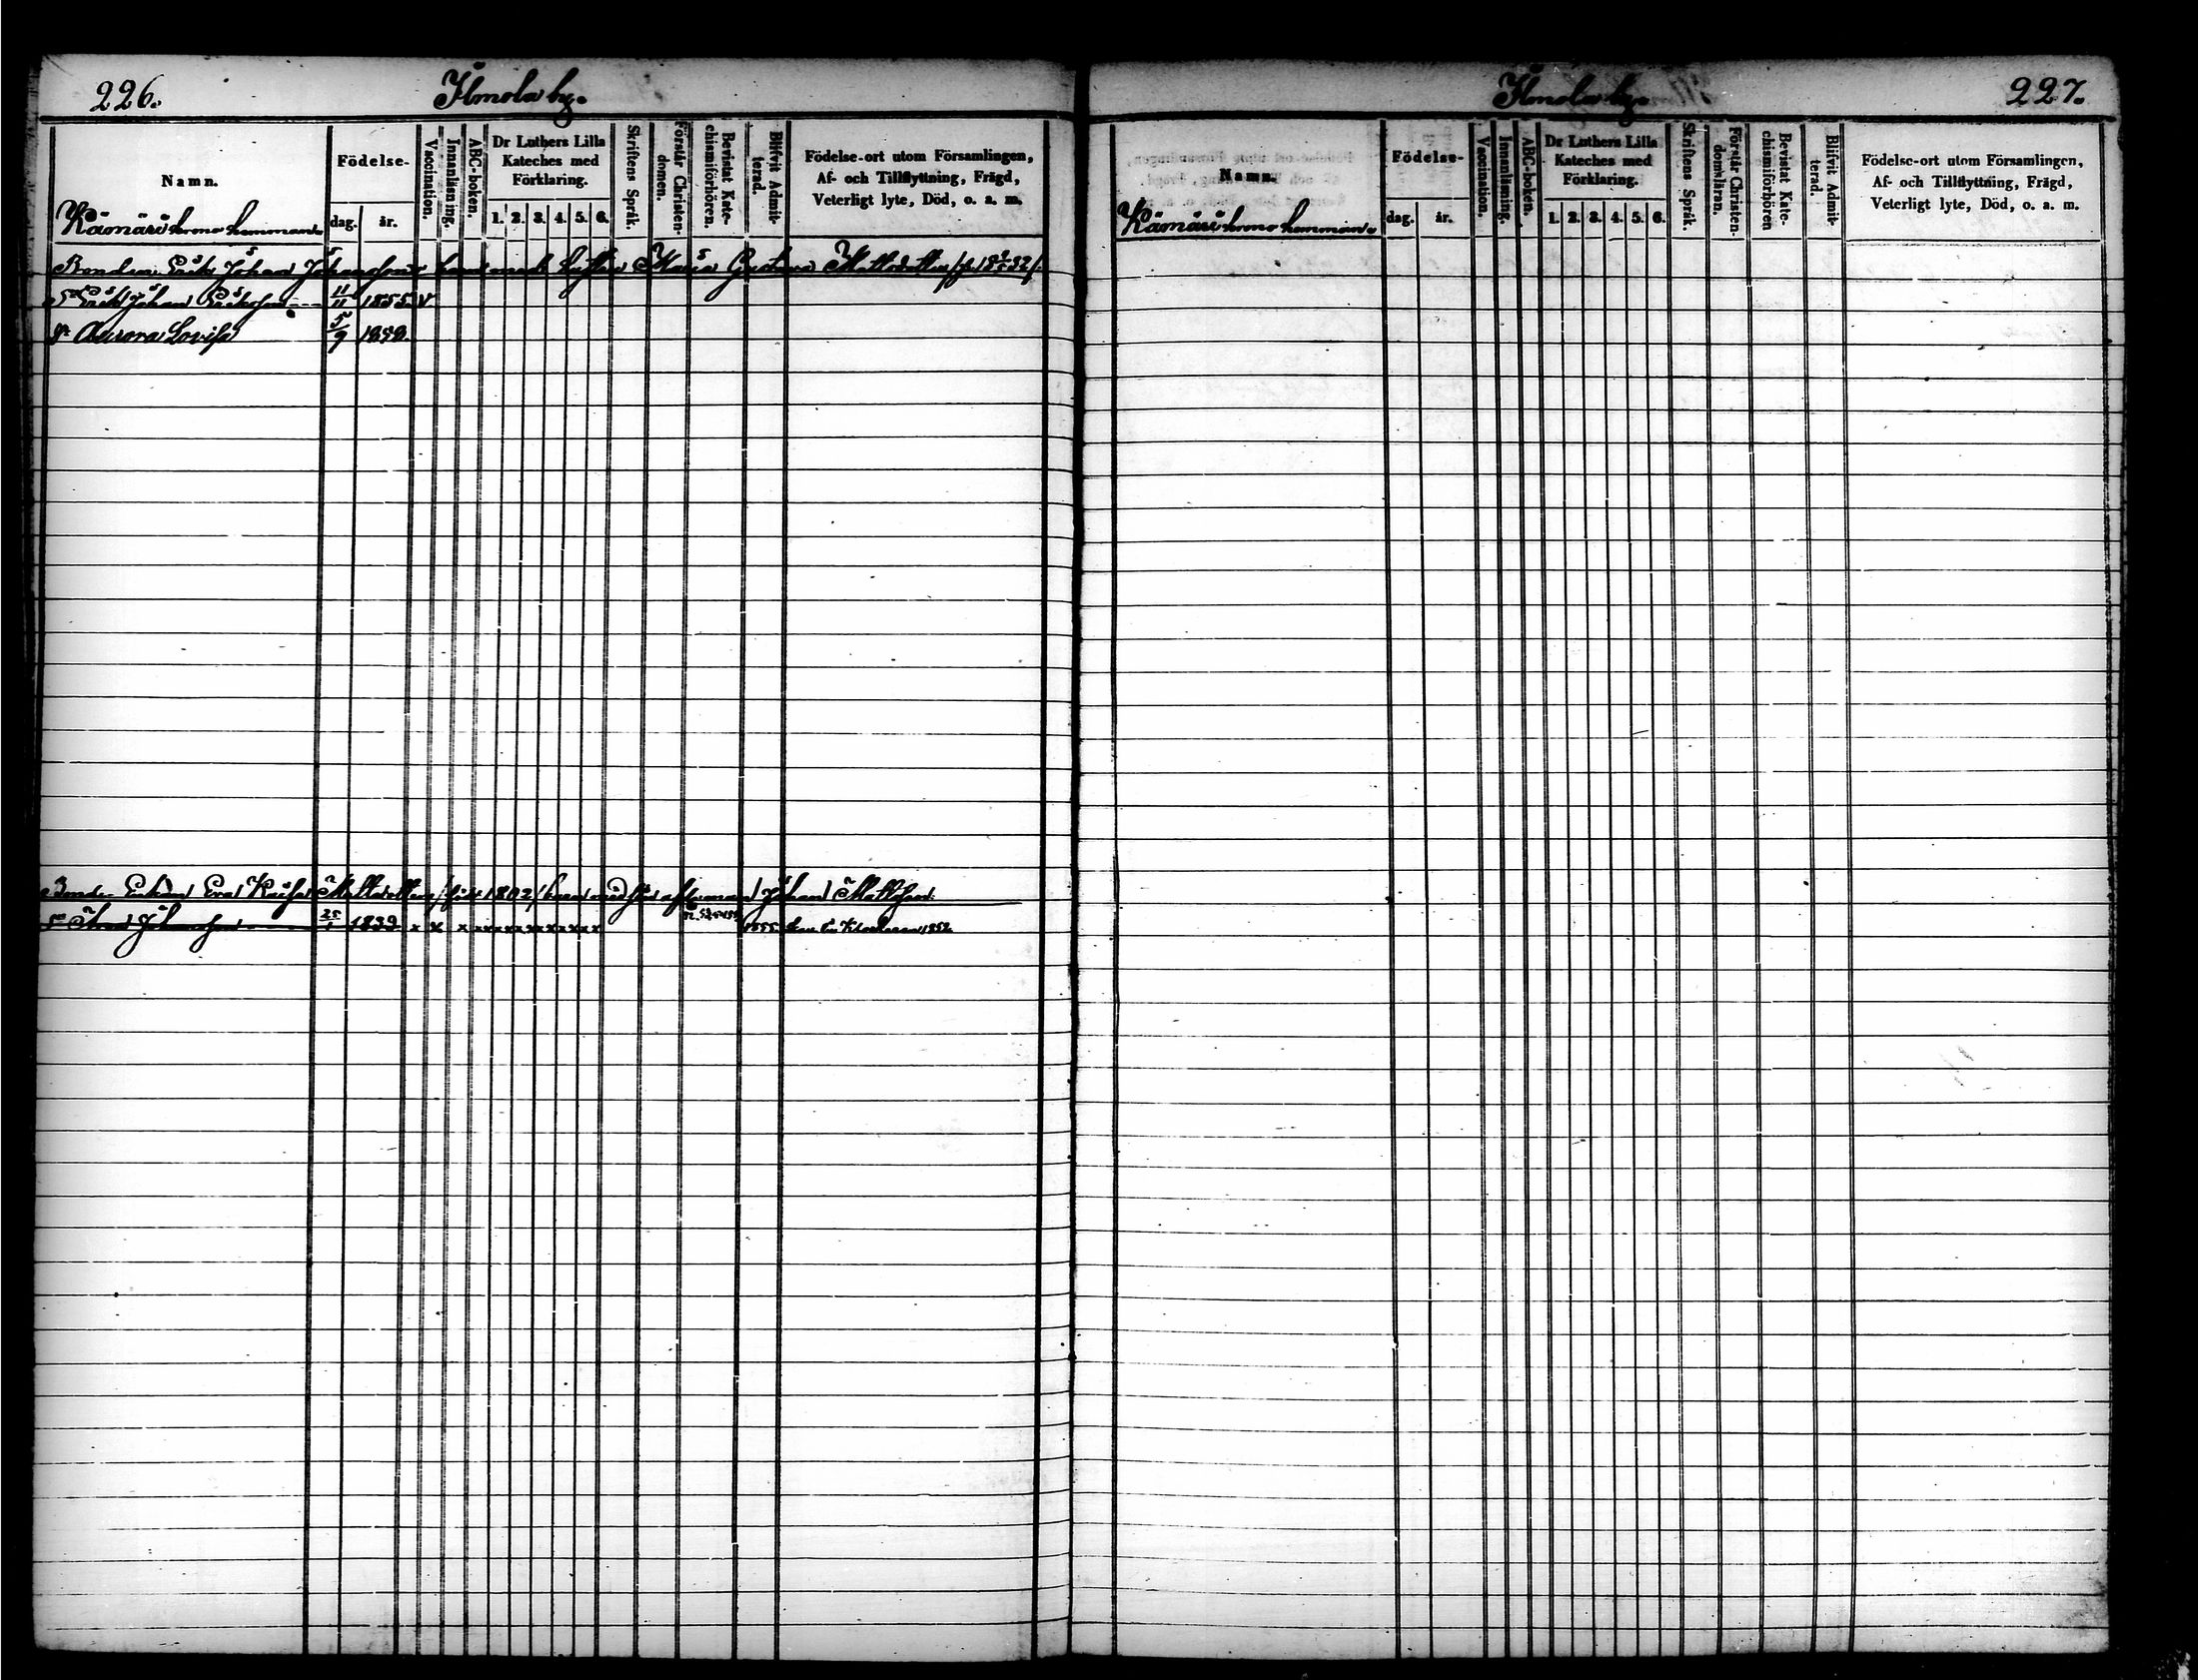 226.
Ilmola by.
Namn.
Födelse-
dag. år.
Vaccination.
Innanläsning.
ABC-boken.
Dr Luthers Lilla
Kateches med
Förklaring.
1. 2. 3. 4. 5. 6.
Skriftens Språk.
Förstår Christen-
domen.
Bevistat Kate-
chismiförhören.
Blifvit Admit-
terad.
Födelse-ort utom Församlingen,
Af- och Tillflyttning, Frägd,
Veterligt lyte, Död, o. a. m.
Kämäri krono hemman
Bonden Erik Johan Johansons barn med hustru Maria Gustava Mattsdotter
Erik Johan Eriksson 11/11 1855 v
Aurora Lovisa 5/9 1858.
Bonde Enkan Eva Kaisa Mattsdotters 1802 barn med Johan Mattsson
Johansson 25/1 1839 x x x x x x x x x x x 1855 1852
227.
Ilmola by.
Namn.
Födelse-
dag. år.
Vaccination.
Innanläsning.
ABC-boken.
Dr Luthers Lilla
Kateches med
Förklaring.
1. 2. 3. 4. 5. 6.
Skriftens Språk.
Förstår Christen-
domsläran.
Bevistat Kate-
chismiförhören
Blifvit Admit-
terad.
Födelse-ort utom Församlingen,
Af- och Tillflyttning, Frägd,
Veterligt lyte, Död, o. a. m.
Kämäri krono hemman